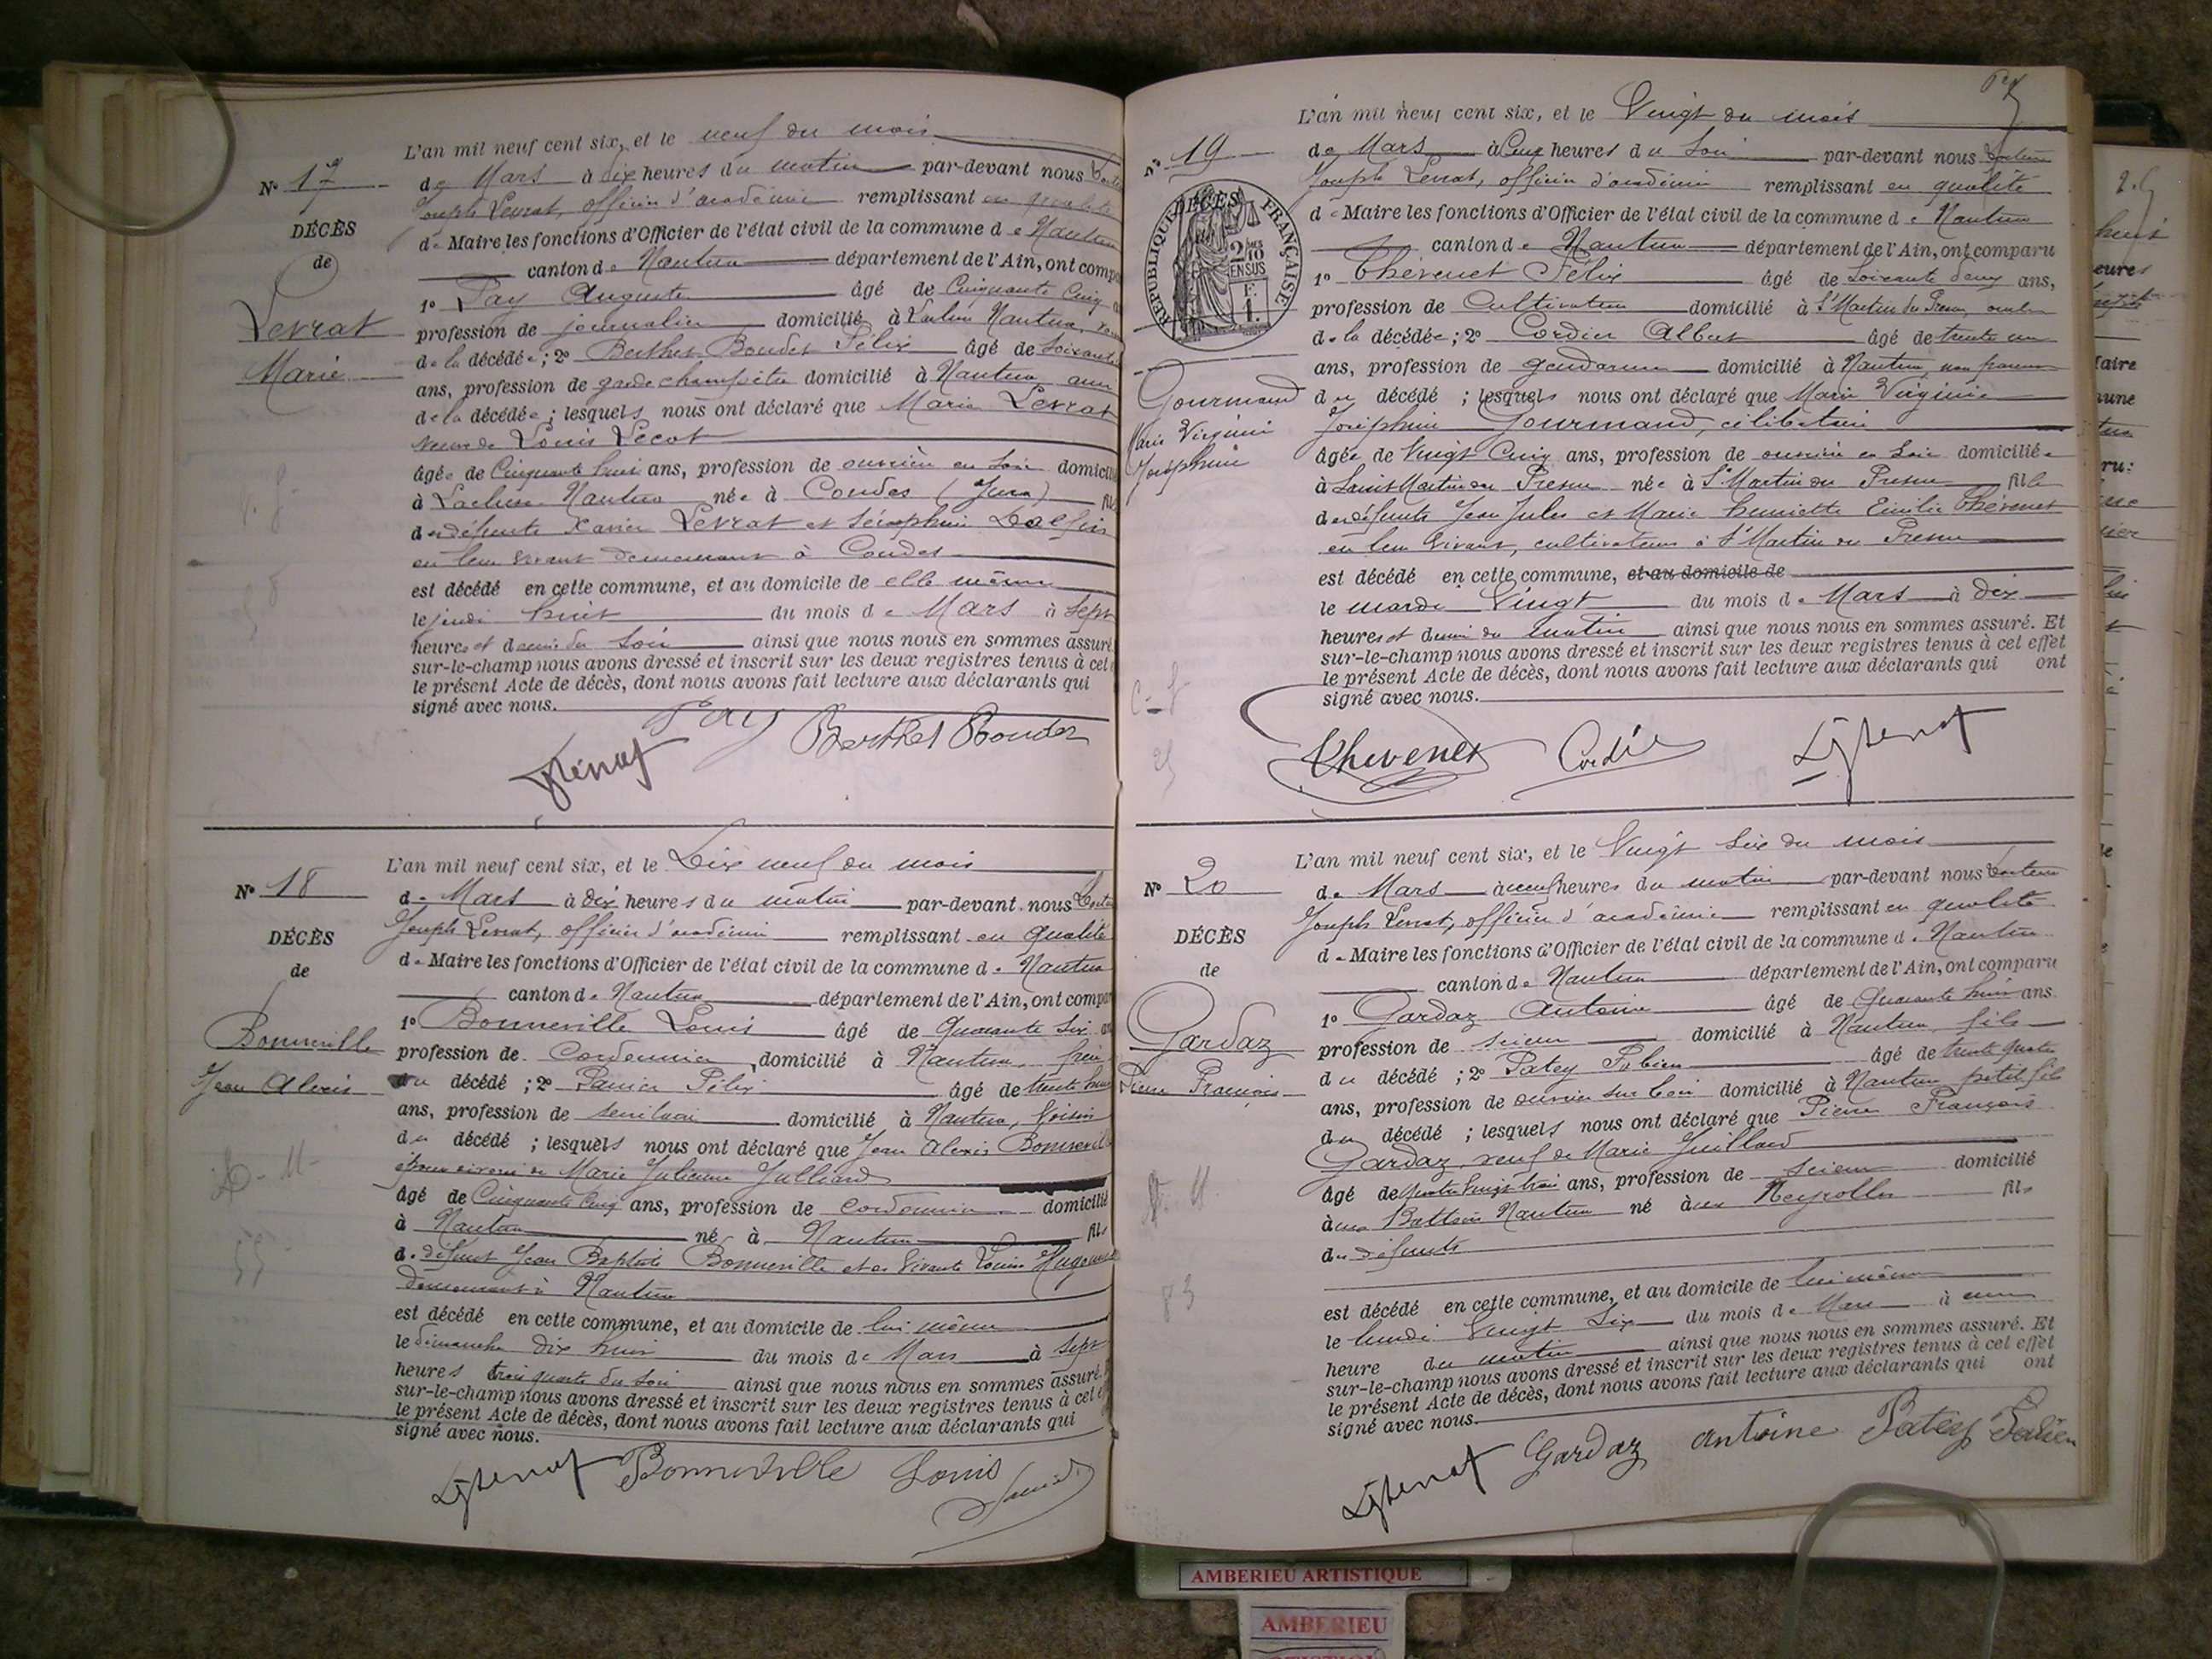 L'an mil neuf cent six, et le neuf du mois
N° 17
de Mars à dix heures du matin par-devant nous
Joseph Levrat, officier d'académie remplissant en qualité
DÉCÈS
de Maire les fonctions d'Officier de l'état civil de la commune de Nantua
de
canton de Nantua département de l'Ain, ont comp
1° Pay Auguste âgé de Cinquante Cinq
Levrat
profession de journalier domicilié à Nantua,
Marie
de la décédée; 2° Berthet Bouder Félix âgé de soixante
ans, profession de garde champêtre domicilié à Nantua, ami
de la décédée; lesquels nous ont déclaré que Marie Levrat
veuve de Louis Lecot
âgée de Cinquante huit ans, profession de ouvrière en soie domicili
à Lacluse Nantua née à Condes (Jura)
de défunts Xavier Levrat et Séraphine
en leur vivant demeurant à Condes
est décédé en cette commune, et au domicile de elle même
le jeudi huit du mois de Mars à sept
heures et demie du soir ainsi que nous nous en sommes assuré
sur-le-champ nous avons dressé et inscrit sur les deux registres tenus à cet
le présent Acte de décès, dont nous avons fait lecture aux déclarants qui
signé avec nous.
Pay Berthet Bouder
L'an mil neuf cent six, et le Dix neuf du mois
N° 18
de Mars à dix heures du matin par-devant nous
Joseph Levrat, officier d'académie remplissant en qualité
DÉCÈS
de Maire les fonctions d'Officier de l'état civil de la commune de Nantua
de
canton de Nantua département de l'Ain, ont compar
Bonneville
1° Bonneville Louis âgé de Quarante six
profession de Cordonnier domicilié à Nantua, frère
Jean Alexis
du décédé; 2° Panier Félix âgé de trente huit
ans, profession de domicilié à Nantua, voisin
du décédé; lesquels nous ont déclaré que Jean Alexis Bonnevill
époux de Marie Julienne Julliard
âgé de Cinquante Cinq ans, profession de cordonnier domicilié
à Nantua né à Nantua fils
de défunt Jean Baptiste Bonneville et de vivante Louise
demeurant à Nantua
est décédé en cette commune, et au domicile de lui même
le dimanche dix huit du mois de Mars à sept
heures trois quarts du soir ainsi que nous nous en sommes assuré.
sur-le-champ nous avons dressé et inscrit sur les deux registres tenus à cet
le présent Acte de décès, dont nous avons fait lecture aux déclarants qui
signé avec nous.
Bonneville Louis
L'an mil neuf cent six, et le Vingt du mois
N° 19
de Mars à heures du soir par-devant nous
Joseph Levrat, officier d'académie remplissant en qualité
DÉCÈS
RÉPUBLIQUE FRANÇAISE
2/10 EN SUS
de Maire les fonctions d'Officier de l'état civil de la commune de Nantua
canton de Nantua département de l'Ain, ont comparu
1° Thévenet Félix âgé de soixante deux ans,
profession de Cultivateur domicilié à St Martin du Fresne, oncle
de la décédée; 2° Cordier Albert âgé de trente un
ans, profession de gendarme domicilié à Nantua, non parent
Gourmand
Marie Virginie
Joséphine
du décédé; lesquels nous ont déclaré que Marie Virginie
Joséphine Gourmand, célibataire
âgée de Vingt Cinq ans, profession de ouvrière en soie domiciliée
à Saint Martin du Fresne née à St Martin du Fresne fille
de défunts Jean Jules et Marie henriette Emilie Thévenet
en leur vivant, cultivateurs à St Martin du Fresne
est décédé en cette commune, et au domicile de
le mardi Vingt du mois de Mars à dix
heures et demi du matin ainsi que nous nous en sommes assuré. Et
sur-le-champ nous avons dressé et inscrit sur les deux registres tenus à cet effet
le présent Acte de décès, dont nous avons fait lecture aux déclarants qui ont
signé avec nous.
Thevenet Cordier
L'an mil neuf cent six, et le Vingt six du mois
N° 20
de Mars à neuf heures du matin par-devant nous
Joseph Levrat, officier d'académie remplissant en qualité
DÉCÈS
de Maire les fonctions d'Officier de l'état civil de la commune de Nantua
de
canton de Nantua département de l'Ain, ont comparu
Gardaz
1° Gardaz Antoine âgé de Quarante huit ans
profession de scieur domicilié à Nantua, fils
Pierre François
du décédé; 2° Patey Fabien âgé de trente quatre
ans, profession de ouvrier sur bois domicilié à Nantua petit fils
du décédé; lesquels nous ont déclaré que Pierre François
Gardaz, veuf de Marie Guillard
âgé de quatre vingt trois ans, profession de scieur domicilié
à Nantua né aux Neyrolles fils
de défunts
83
est décédé en cette commune, et au domicile de lui même
le lundi Vingt Six du mois de Mars à une
heure du matin ainsi que nous nous en sommes assuré. Et
sur-le-champ nous avons dressé et inscrit sur les deux registres tenus à cet effet
le présent Acte de décès, dont nous avons fait lecture aux déclarants qui ont
signé avec nous.
Gardaz antoine Patey Fabien
AMBERIEU ARTISTIQUE
AMBERIEU